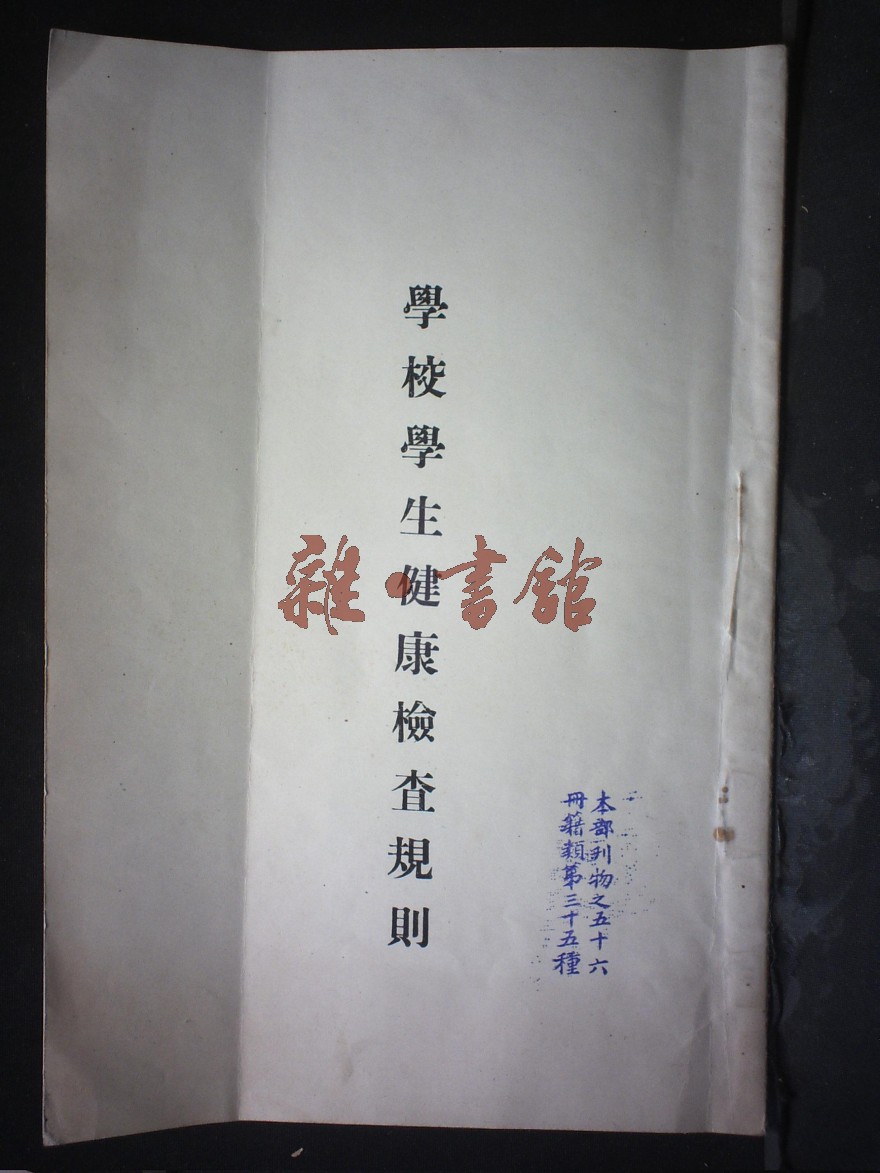 本部刋物之五十六
冊籍類第三十五種
學校學生健康檢查規則
雜·書館